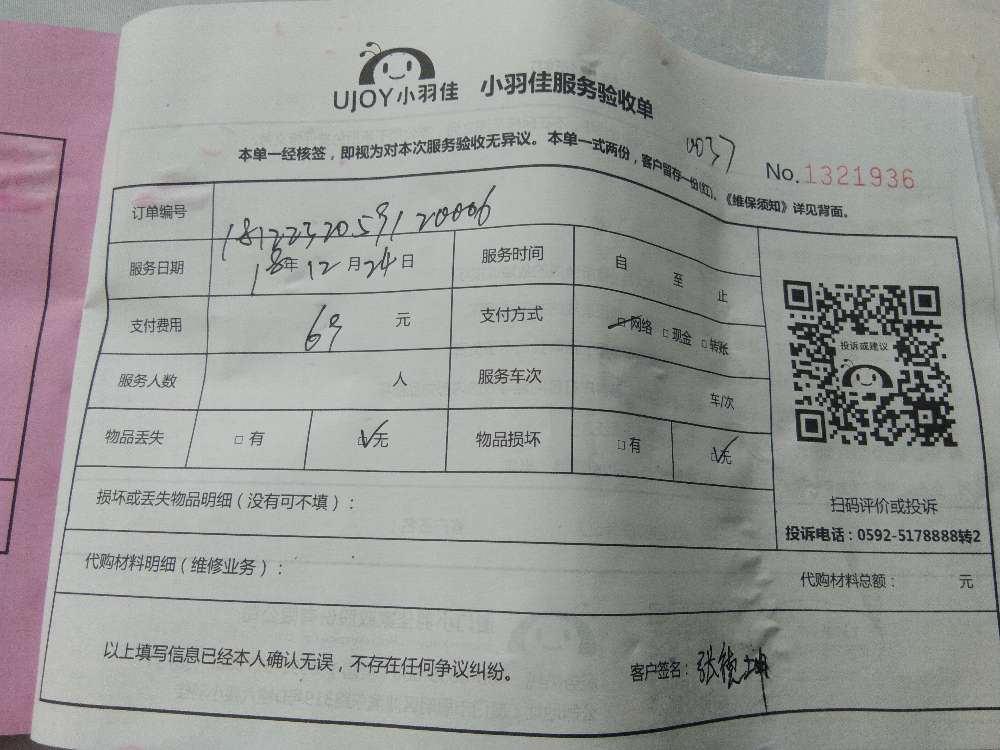 UJOY小羽佳 小羽佳服务验收单
本单一经核签，即视为对本次服务验收无异议。本单一式两份，客户留存一份(红)。《维保须知》详见背面。
0037
No.1321936
订单编号 1812232059120006
服务日期 18年12月24日 服务时间 自 至 止
支付费用 69 元 支付方式 □网络 □现金 □转账
服务人数 人 服务车次 车/次
物品丢失 □有 ☑无 物品损坏 □有 ☑无
投诉或建议
扫码评价或投诉
投诉电话：0592-5178888转2
损坏或丢失物品明细（没有可不填）：
代购材料明细（维修业务）： 代购材料总额： 元
以上填写信息已经本人确认无误，不存在任何争议纠纷。 客户签名：张德坤